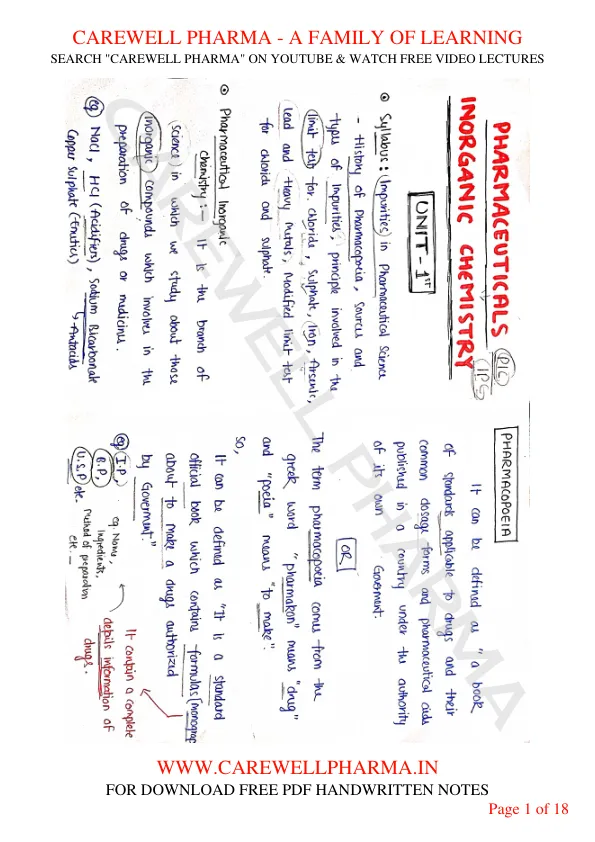 CAREWELL PHARMA - A FAMILY OF LEARNING
SEARCH "CAREWELL PHARMA" ON YOUTUBE & WATCH FREE VIDEO LECTURES
PHARMACEUTICALS PIC
INORGANIC CHEMISTRY IPS
UNIT - 1ST
Syllabus : Impurities in Pharmaceutical Science
- History of Pharmacopoeia, Sources and
types of Impurities, principle involved in the
limit test for chloride, Sulphate, Iron, Arsenic,
Lead and Heavy Metals, Modified limit test
for chloride and sulphate
Pharmaceutical Inorganic
Chemistry :- It is the branch of
Science in which we study about those
Inorganic compounds which involves in the
preparation of drugs or medicines.
eg NaCl, HCl (Acidifiers), Sodium Bicarbonate
↳ Antacids
Copper Sulphate (Emetics)
PHARMACOPOEIA
It can be defined as "a book
of standards applicable to drugs and their
common dosage forms and pharmaceutical aids
published in a country under the authority
of its own Goverment.
OR
The term pharmacopoeia comes from the
greek word "pharmakon" means "drug"
and "poeia" means "to make".
So,
It can be defined as "It is a standard
official book which contains formulas (monograp
about to make a drugs authorized
by Goverment."
eg I.P,
B.P,
U.S.P etc.
eg. Name,
Ingredients,
Method of preparation
etc. -
It contain a complete
details information of
drugs.
CAREWELL PHARMA
WWW.CAREWELLPHARMA.IN
FOR DOWNLOAD FREE PDF HANDWRITTEN NOTES
Page 1 of 18